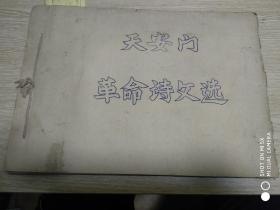 天安门
革命诗文选
SHOT ON MI 5X
MI DUAL CAMERA